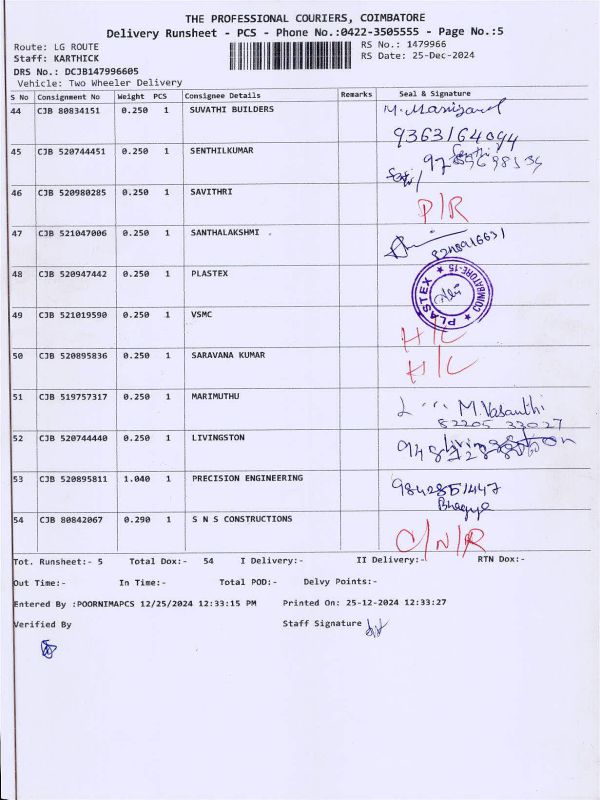 THE PROFESSIONAL COURIERS, COIMBATORE
Delivery Runsheet - PCS - Phone No.:0422-3505555 - Page No.:5
Route: LG ROUTE
RS No.: 1479966
Staff: KARTHICK
RS Date: 25-Dec-2024
DRS No.: DCJB147996605
Vehicle: Two Wheeler Delivery
S No Consignment No Weight PCS Consignee Details Remarks Seal & Signature
44 CJB 80834151 0.250 1 SUVATHI BUILDERS
9363164094
45 CJB 520744451 0.250 1 SENTHILKUMAR
46 CJB 520980285 0.250 1 SAVITHRI P/R
47 CJB 521047006 0.250 1 SANTHALAKSHMI
8248916631
48 CJB 520947442 0.250 1 PLASTEX
PLASTEX ★ COIMBATORE-15. ★
49 CJB 521019590 0.250 1 VSMC H/C
50 CJB 520895836 0.250 1 SARAVANA KUMAR H/C
51 CJB 519757317 0.250 1 MARIMUTHU M.Vasanthi
82205 33027
52 CJB 520744440 0.250 1 LIVINGSTON Livingston
53 CJB 520895811 1.040 1 PRECISION ENGINEERING 9842851447
54 CJB 80842067 0.290 1 S N S CONSTRUCTIONS C/N/R
Tot. Runsheet:- 5 Total Dox:- 54 I Delivery:- II Delivery:- RTN Dox:-
Out Time:- In Time:- Total POD:- Delvy Points:-
Entered By :POORNIMAPCS 12/25/2024 12:33:15 PM Printed On: 25-12-2024 12:33:27
Verified By Staff Signature